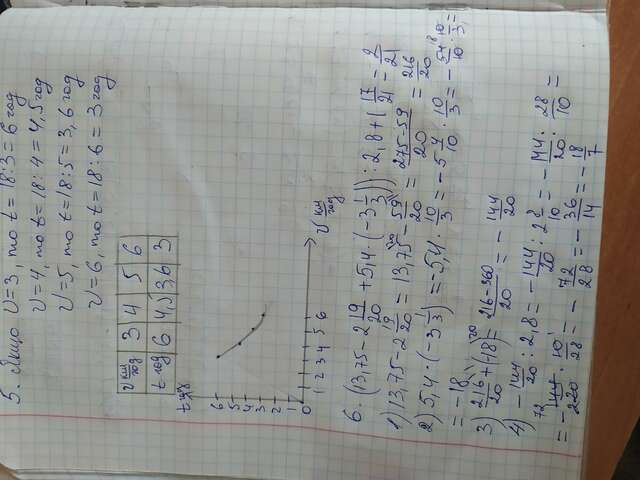 5. Якщо v=3, то t=18:3=6 год
v=4, то t=18:4=4,5 год
v=5, то t=18:5=3,6 год
v=6, то t=18:6=3 год
v км/год 3 4 5 6
t год 6 4,5 3,6 3
t год
6
5
4
3
2
1
0 1 2 3 4 5 6 v км/год
6. (13,75-2 19/20+5,4·(-3 1/3)):2,8+(17/21-2/21
1) 13,75-2 19/20=13,75-59/20=275-59/20=216/20
2) 5,4·(-3 1/3)=5,4·10/3=-5 4/10·10/3=-54/10·10/3=
=-18
3) 216/20+(-18)=216-360/20=-144/20
4) -144/20:2,8=-144/20:2 8/10=-144/20:28/10=
=-144/20·10/28=-72/28=-36/14=-18/7